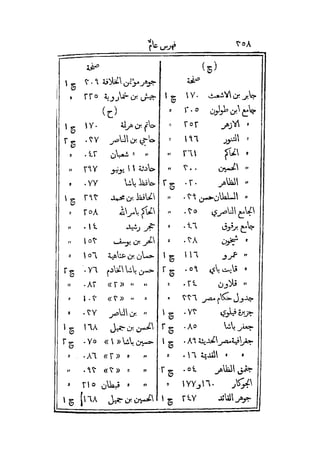 ٢٥٨ فهرس عام
(ج)
صفحة
جابر بن الاشعث ١٧٠ ج ١
جامع ابن طولون ٢٠٥ »
» الازهر ٢٥٢ »
» التنور ١٩٦ »
» الحاكم ٢٦١ »
» الحسين ٢٠٠ »
» الظاهر ٠٢٠ ج ٢
» السلطان حسن ٠٢٩ »
الجامع الناصري ٠٢٥ »
جامع برقوق ٠٤٦ »
» شيخون ٠٢٨ »
» عمرو ١١٦ ج ١
» قايت باي ٠٥٩ ج ٢
» قلاون ٠٢٤ »
جدول حكام مصر ٢٢٦ »
جزيرة فيلوي ٠٧٢ ج ١
جعفر باشا ٠٨٥ ج ٢
جغرافية مصر الحديثة ٠٨٩ ج ١
» » القديمة ٠١٦ »
جقمق الظاهر ٠٥٤ ج ٢
الجوكار ١٦٠ و ١٧٧ »
جوهر القائد ٢٤٧ ج ١
صفحة
جوهر مؤتمن الخلافة ٢٠٩ ج ١
جيش بن خمارويه ٢٢٥ »
(ح)
حاتم بن هرثمة ١٧٠ ج ١
حاجي بن الناصر ٠٢٧ ج ٢
» » شعبان ٠٤٢ »
حادثة ١١ يونيو ٢٩٧ »
حافظ باشا ٠٧٧ »
الحافظ بن محمد ٢٩٢ ج ١
الحاكم بامر الله ٢٥٨ »
حجر رشيد ٠١٤ »
الحر بن يوسف ١٥٢ »
حسان بن عتاهية ١٥٦ »
حسن باشا الخادم ٠٧٦ ج ٢
» » «٢» ٠٨٢ »
» » «٣» ١٠٢ »
» بن الناصر ٠٢٧ »
الحسن بن جميل ١٦٨ ج ١
حسين باشا «١» ٠٧٥ ج ٢
» » «٢» ٠٨٦ »
» » «٣» ٠٩٢ »
» قبطان ٢١٥ »
الحسين بن جميل ١٦٨ ج ١